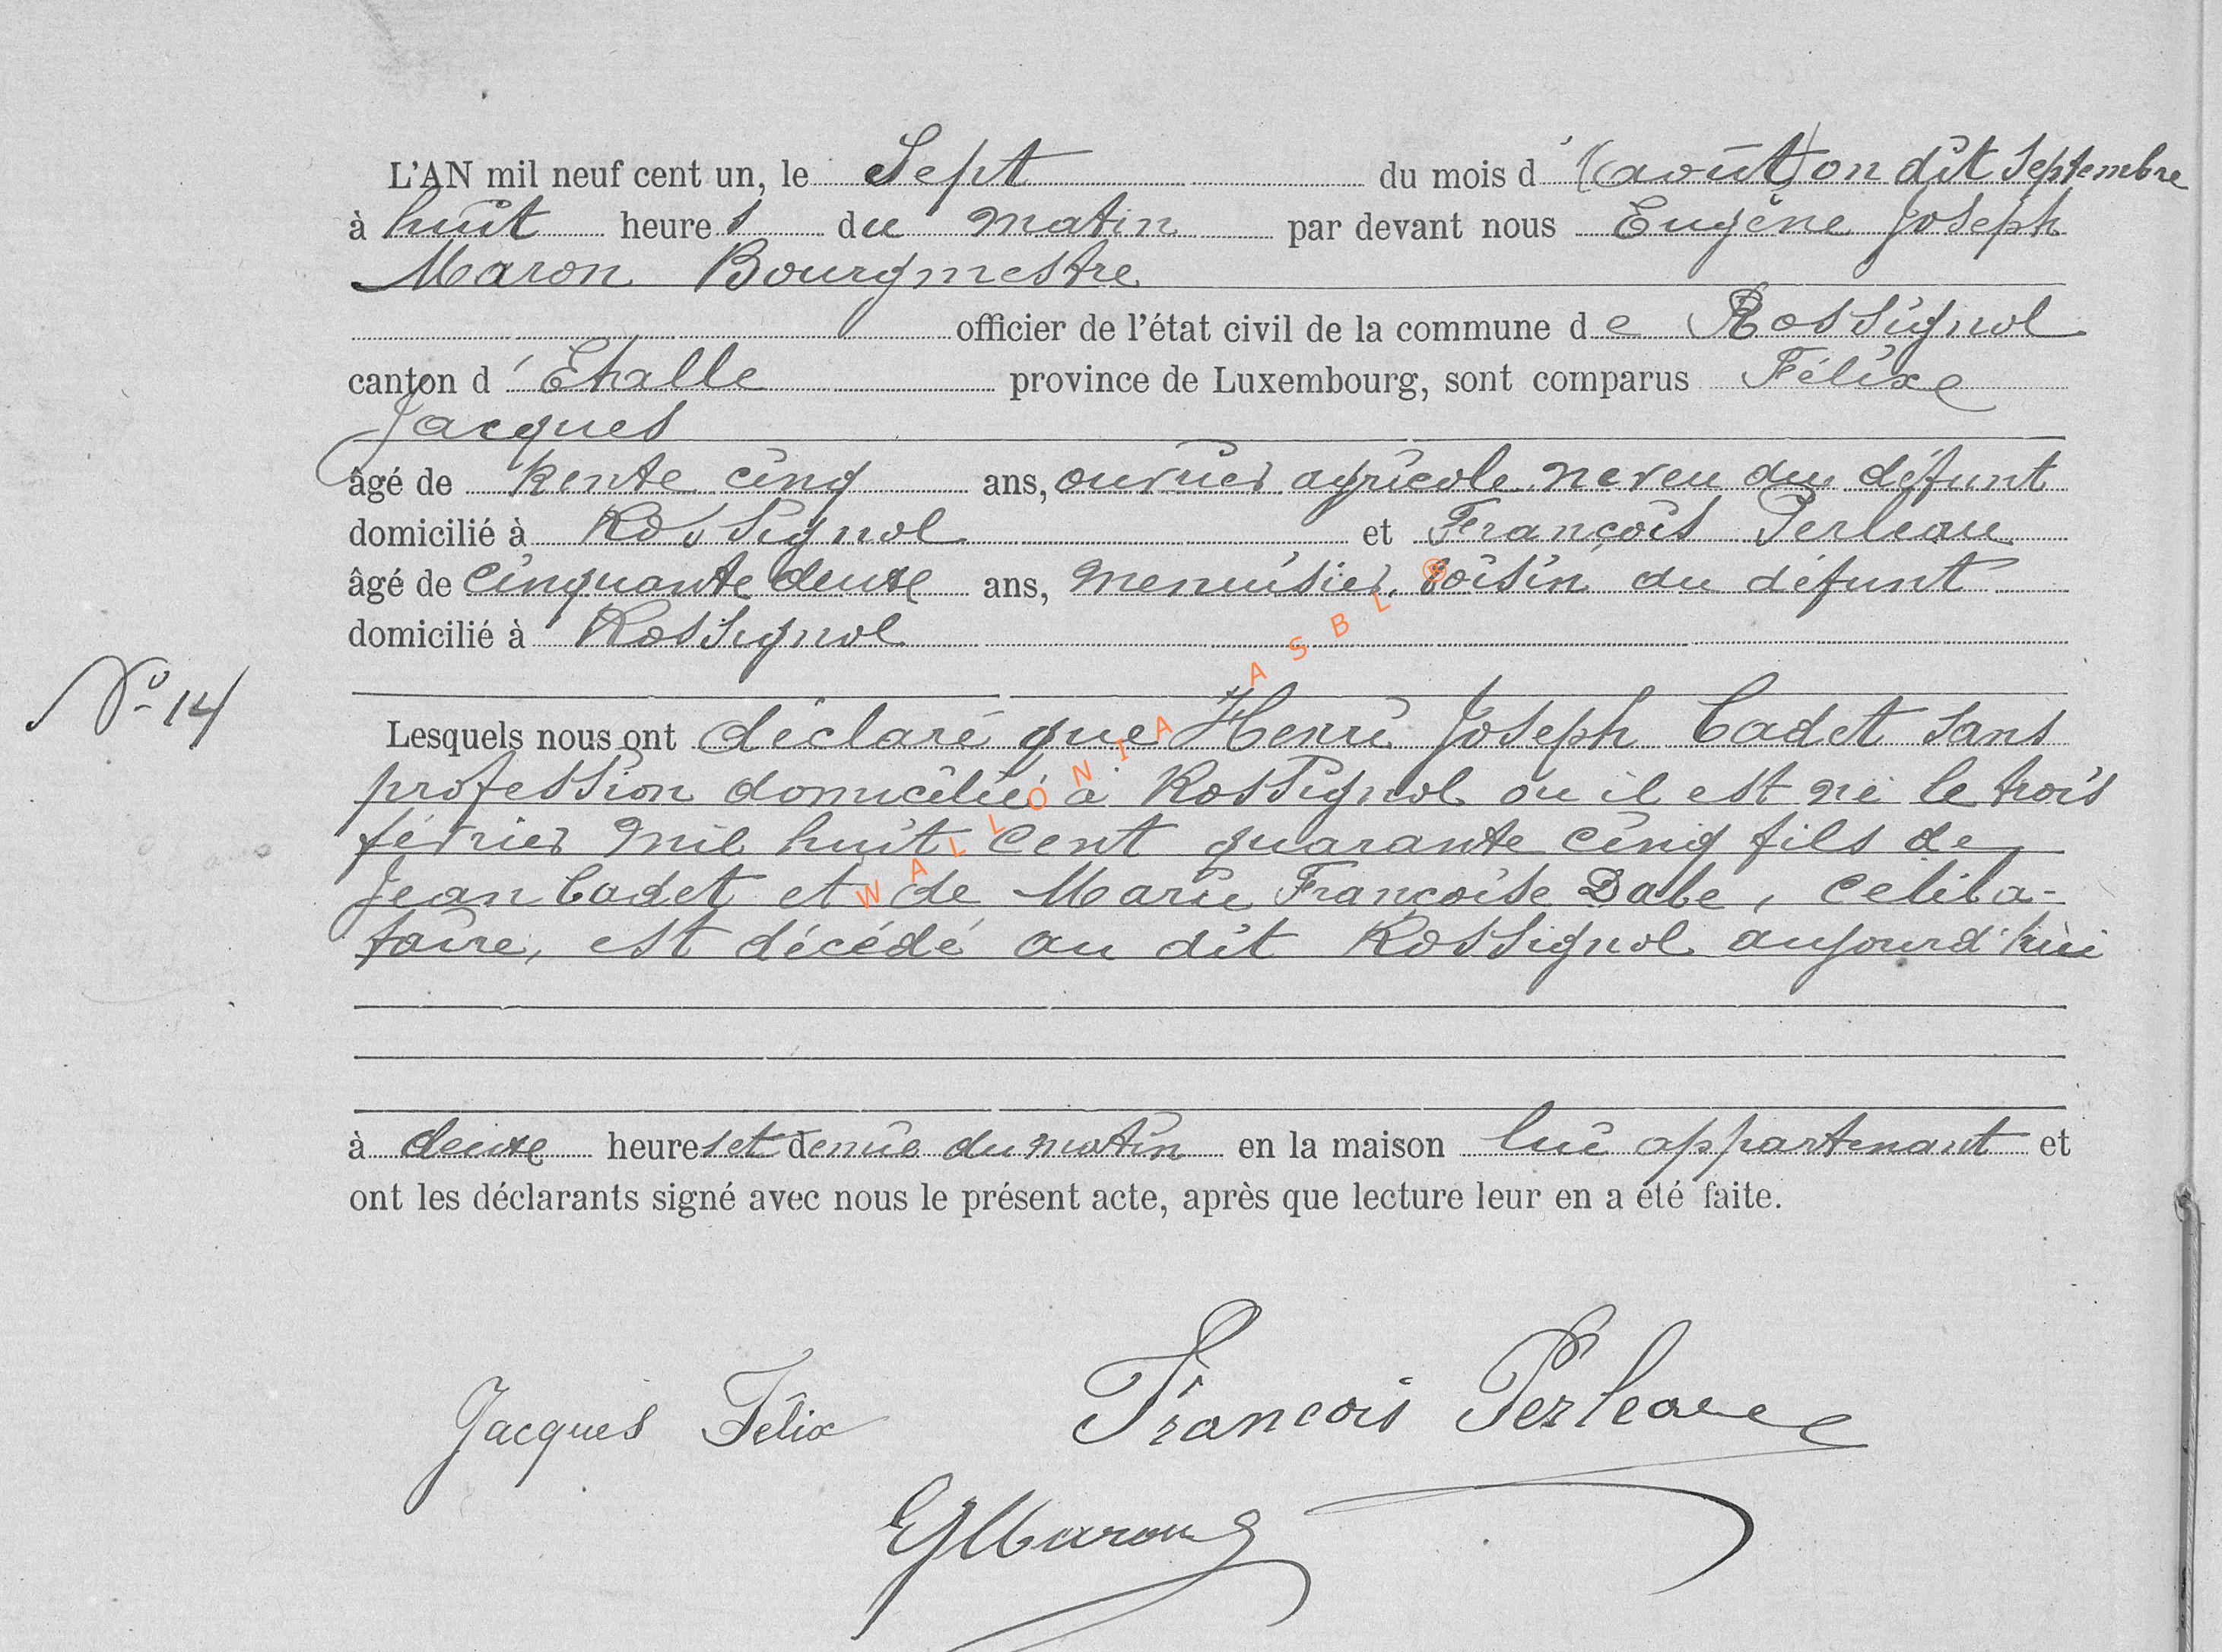 L'AN mil neuf cent un, le Sept du mois d' (août) on dit Septembre
à huit heures du matin par devant nous Eugène Joseph
Maron Bourgmestre
officier de l'état civil de la commune de Rossignol
canton d' Etalle province de Luxembourg, sont comparus Félixe
Jacques
âgé de trente cinq ans, ouvrier agricole neveu du défunt
domicilié à Rossignol et François Perleau
âgé de cinquante deuxe ans, menuisier, voisin du défunt
domicilié à Rossignol
Nº 14
Lesquels nous ont déclaré que Henri Joseph Cadet sans
profession domicilié à Rossignol ou il est né le trois
février mil huit cent quarante cinq fils de
Jean Cadet et de Marie Françoise Dabe, celiba-
taire, est décédé au dit Rossignol aujourd'hui
à deuxe heures et demie du matin en la maison lui appartenant et
ont les déclarants signé avec nous le présent acte, après que lecture leur en a été faite.
Jacques Félix François Perleau
EJMaron
WALLONIA ASBL ®